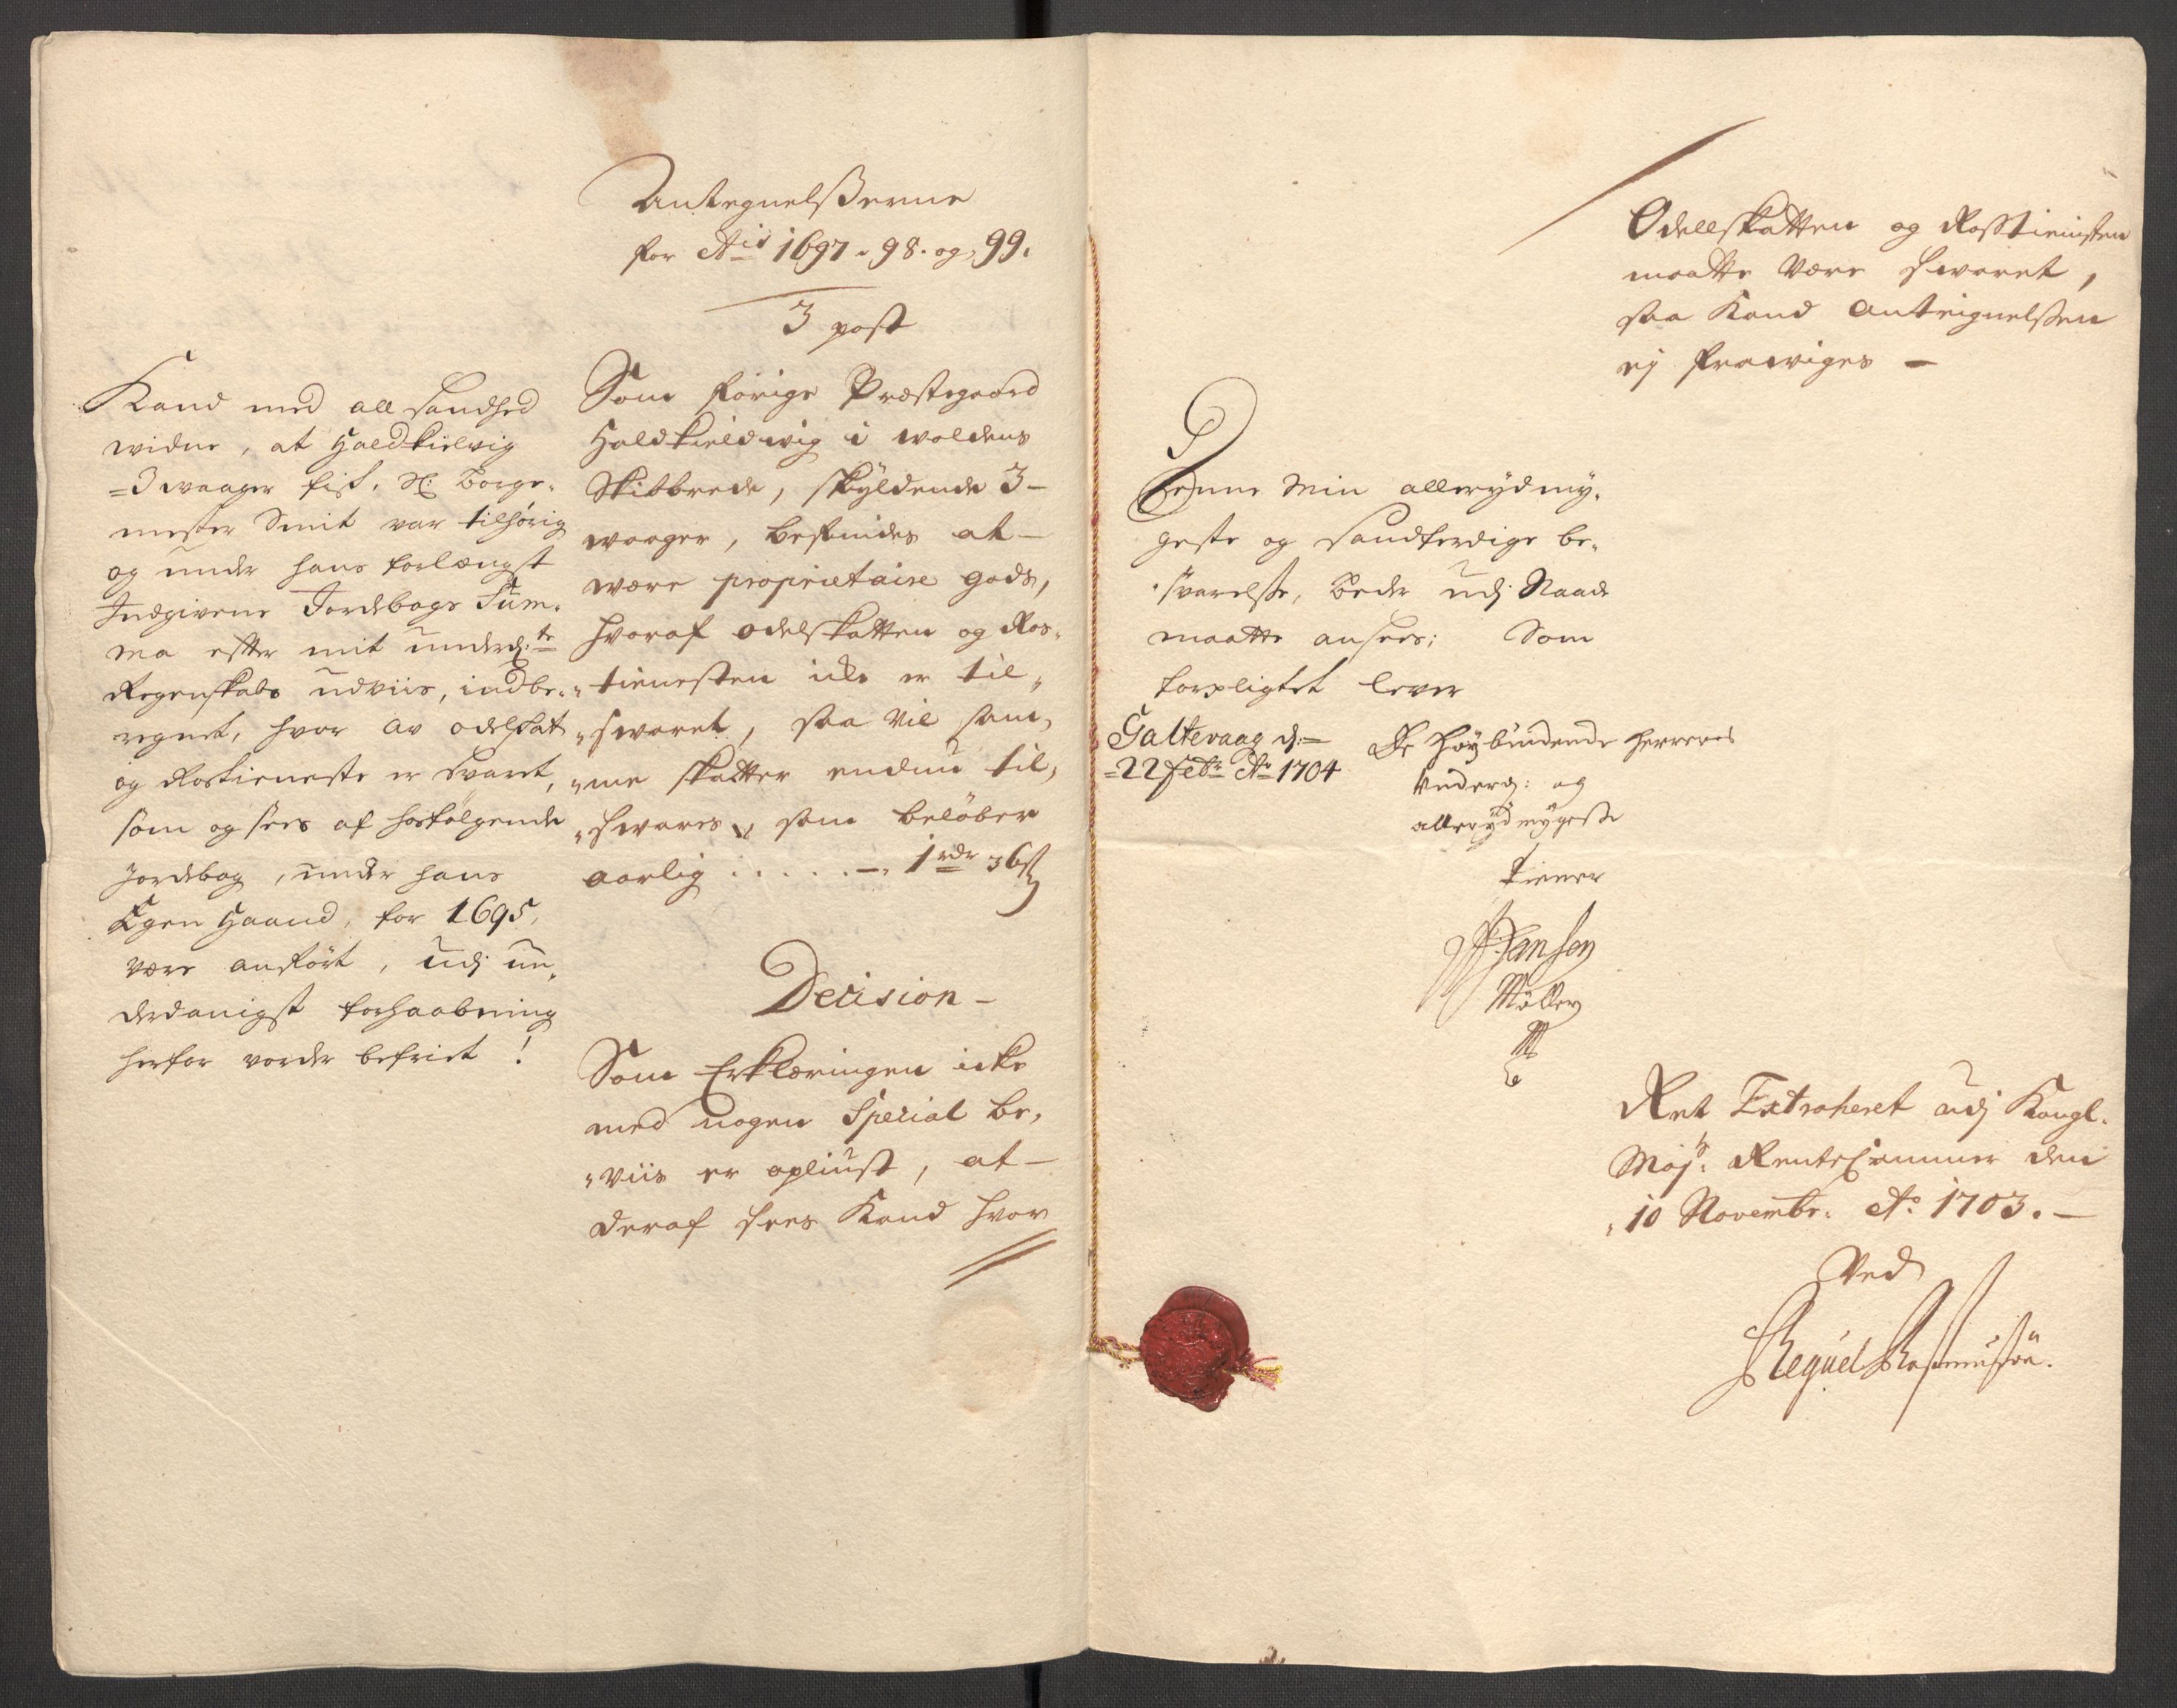 Antegnelßerne
for A͞is 1697. 98. og 99.
3 post
Som forige Præstegaard
Holdkieldwig i woldens
Skibbrede, skyldende 3-
woger, befindes at-
være proprietaire gods,
hvoraf odelskatten og Ros-
tienesten icke er til-
sworet, saa vil sam-
me skatter endnu til-
swares, som beløber
aarlig . . . . . -. 1 rdr 36 ß
Decision-
Som Erklæringen icke
med nogen Special be-
viis er opliust, at-
deraf sees Kand hvor
Kand med all sandhed
widne, at Haldkielvig
=3 waager fisk, Sl: Borge-
mester Smit var tilhørig
og under hans forlængst
Indgivene Jordebogs Sum-
ma effter mit underd:te
Regenskabs udviis, indbe-
regnet, hvor av odelskat
og Rostieneste er svaret,
som og sees af hosfølgende
Jordebog, under hans
Egen Haand, for 1695,
være anført, udj un-
derdanigst forhaabning
herfor vorder befriet!
Odellskatten og Rosstienisten
maatte være sworet,
saa Kand Anteignelsen
ej frawiges -
Denne Min allerydmy-
geste og sandferdige be-
svarelße, beder udj Naade
maatte ansees; Som
forpligtet lever
Galtevaag d:
=22 Febr: Ao 1704
De Høybiudende Herrers
Underd: og
allerydmygeste
tiener
Jansen
Møller
Ret Extraheret udj Kongl.
Maj:ts RenteCammer den
10 Novembr: Ao: 1703. -
Ved
Reqüel Rasmussøn.